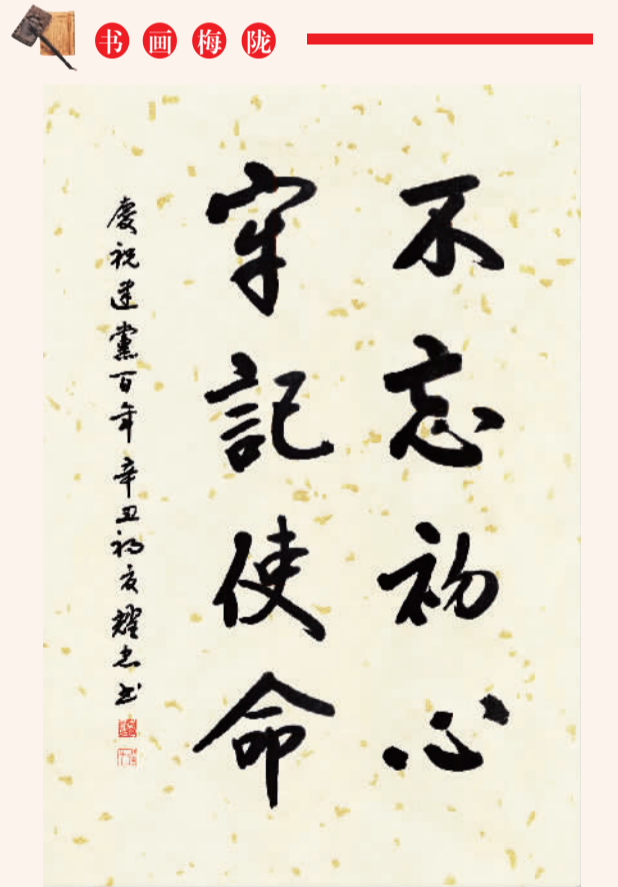 书画梅陇
不忘初心
牢記使命
慶祝建黨百年 辛丑初夏 耀忠书